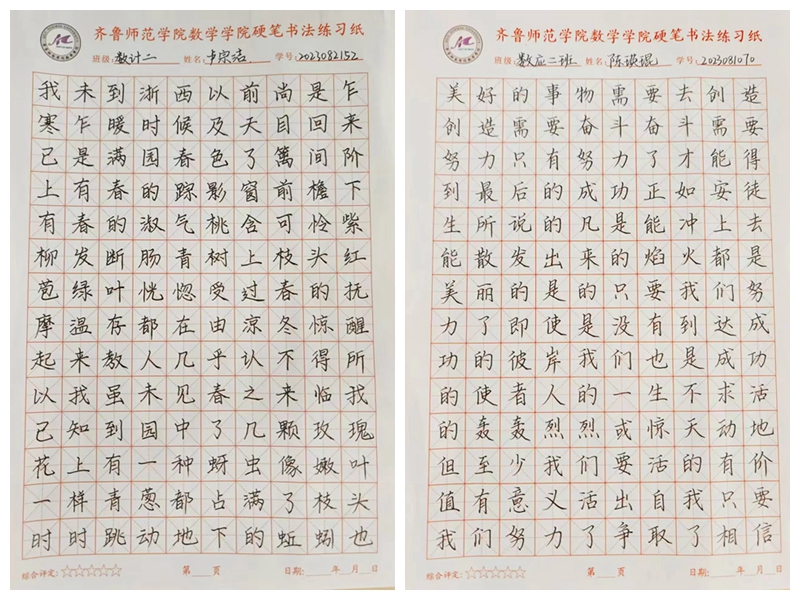 齐鲁师范学院数学学院硬笔书法练习纸
班级:数计二 姓名:卢宗洁 学号:2023082152
我未到浙西以前尚是乍
寒乍暖时候及天目回来
已是满园春色了篱间阶
上有春的踪影窗前檐下
有春的淑气桃含可怜紫
柳发断肠青树上枝头红
苞绿叶恍惚受过春的抚
摩温存都在由凉冬惊醒
起来教人几乎认不得所
以我虽未见春之来临我
已知到园中了几颗玫瑰
花上有一种蚜虫像嫩叶
一样青葱都占满了枝头
时时跳动地下的蚯蚓也
综合评定:☆☆☆☆☆ 第 页 日期: 年 月 日
齐鲁师范学院数学学院硬笔书法练习纸
班级:数应二班 姓名:陈琪琨 学号:2023081070
美好的事物需要去创造
创造需要奋斗奋斗需要
努力只有努力了才能得
到最后的成功正如安徒
生所说的凡是能冲上去
能散发出来的焰火都是
美丽的是的只要我们努
力了即使是没有到达成
功的彼岸我们也是成功
的使者人的一生不求活
的轰轰烈烈或惊天动地
但至少我们要活的有价
值有意义活出自我只要
我们努力了争取了相信
综合评定:☆☆☆☆☆ 第 页 日期: 年 月 日